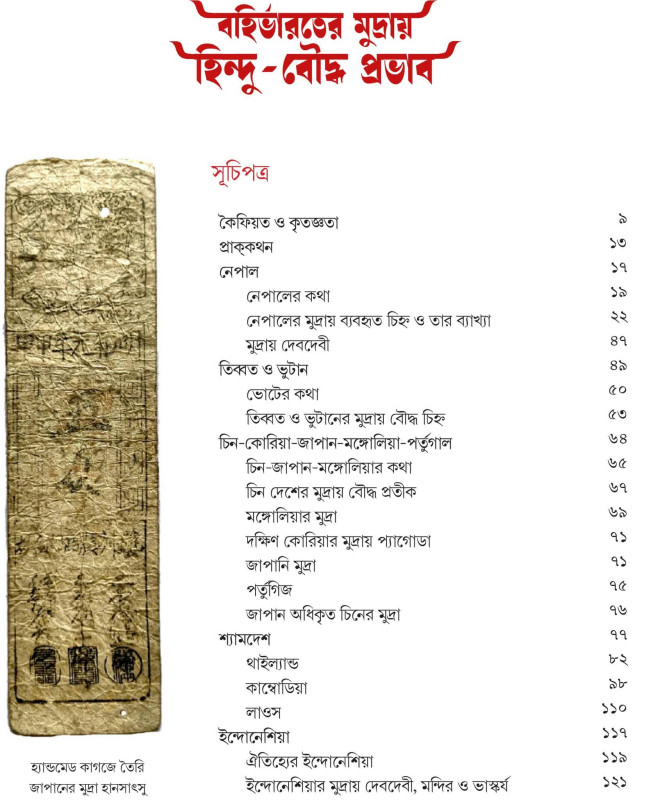 বহির্ভারতের মুদ্রায়
হিন্দু-বৌদ্ধ প্রভাব
সূচিপত্র
কৈফিয়ত ও কৃতজ্ঞতা ৯
প্রাক্‌কথন ১৩
নেপাল ১৭
নেপালের কথা ১৯
নেপালের মুদ্রায় ব্যবহৃত চিহ্ন ও তার ব্যাখ্যা ২২
মুদ্রায় দেবদেবী ৪৭
তিব্বত ও ভুটান ৪৯
ভোটের কথা ৫০
তিব্বত ও ভুটানের মুদ্রায় বৌদ্ধ চিহ্ন ৫৩
চিন-কোরিয়া-জাপান-মঙ্গোলিয়া-পর্তুগাল ৬৪
চিন-জাপান-মঙ্গোলিয়ার কথা ৬৫
চিন দেশের মুদ্রায় বৌদ্ধ প্রতীক ৬৭
মঙ্গোলিয়ার মুদ্রা ৬৯
দক্ষিণ কোরিয়ার মুদ্রায় প্যাগোডা ৭১
জাপানি মুদ্রা ৭১
পর্তুগিজ ৭৫
জাপান অধিকৃত চিনের মুদ্রা ৭৬
শ্যামদেশ ৭৭
থাইল্যান্ড ৮২
কাম্বোডিয়া ৯৮
লাওস ১১০
ইন্দোনেশিয়া ১১৭
ঐতিহ্যের ইন্দোনেশিয়া ১১৯
ইন্দোনেশিয়ার মুদ্রায় দেবদেবী, মন্দির ও ভাস্কর্য ১২১
হ্যান্ডমেড কাগজে তৈরি
জাপানের মুদ্রা হানসাৎসু